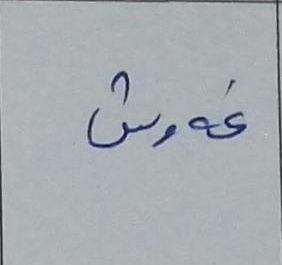 غەوش